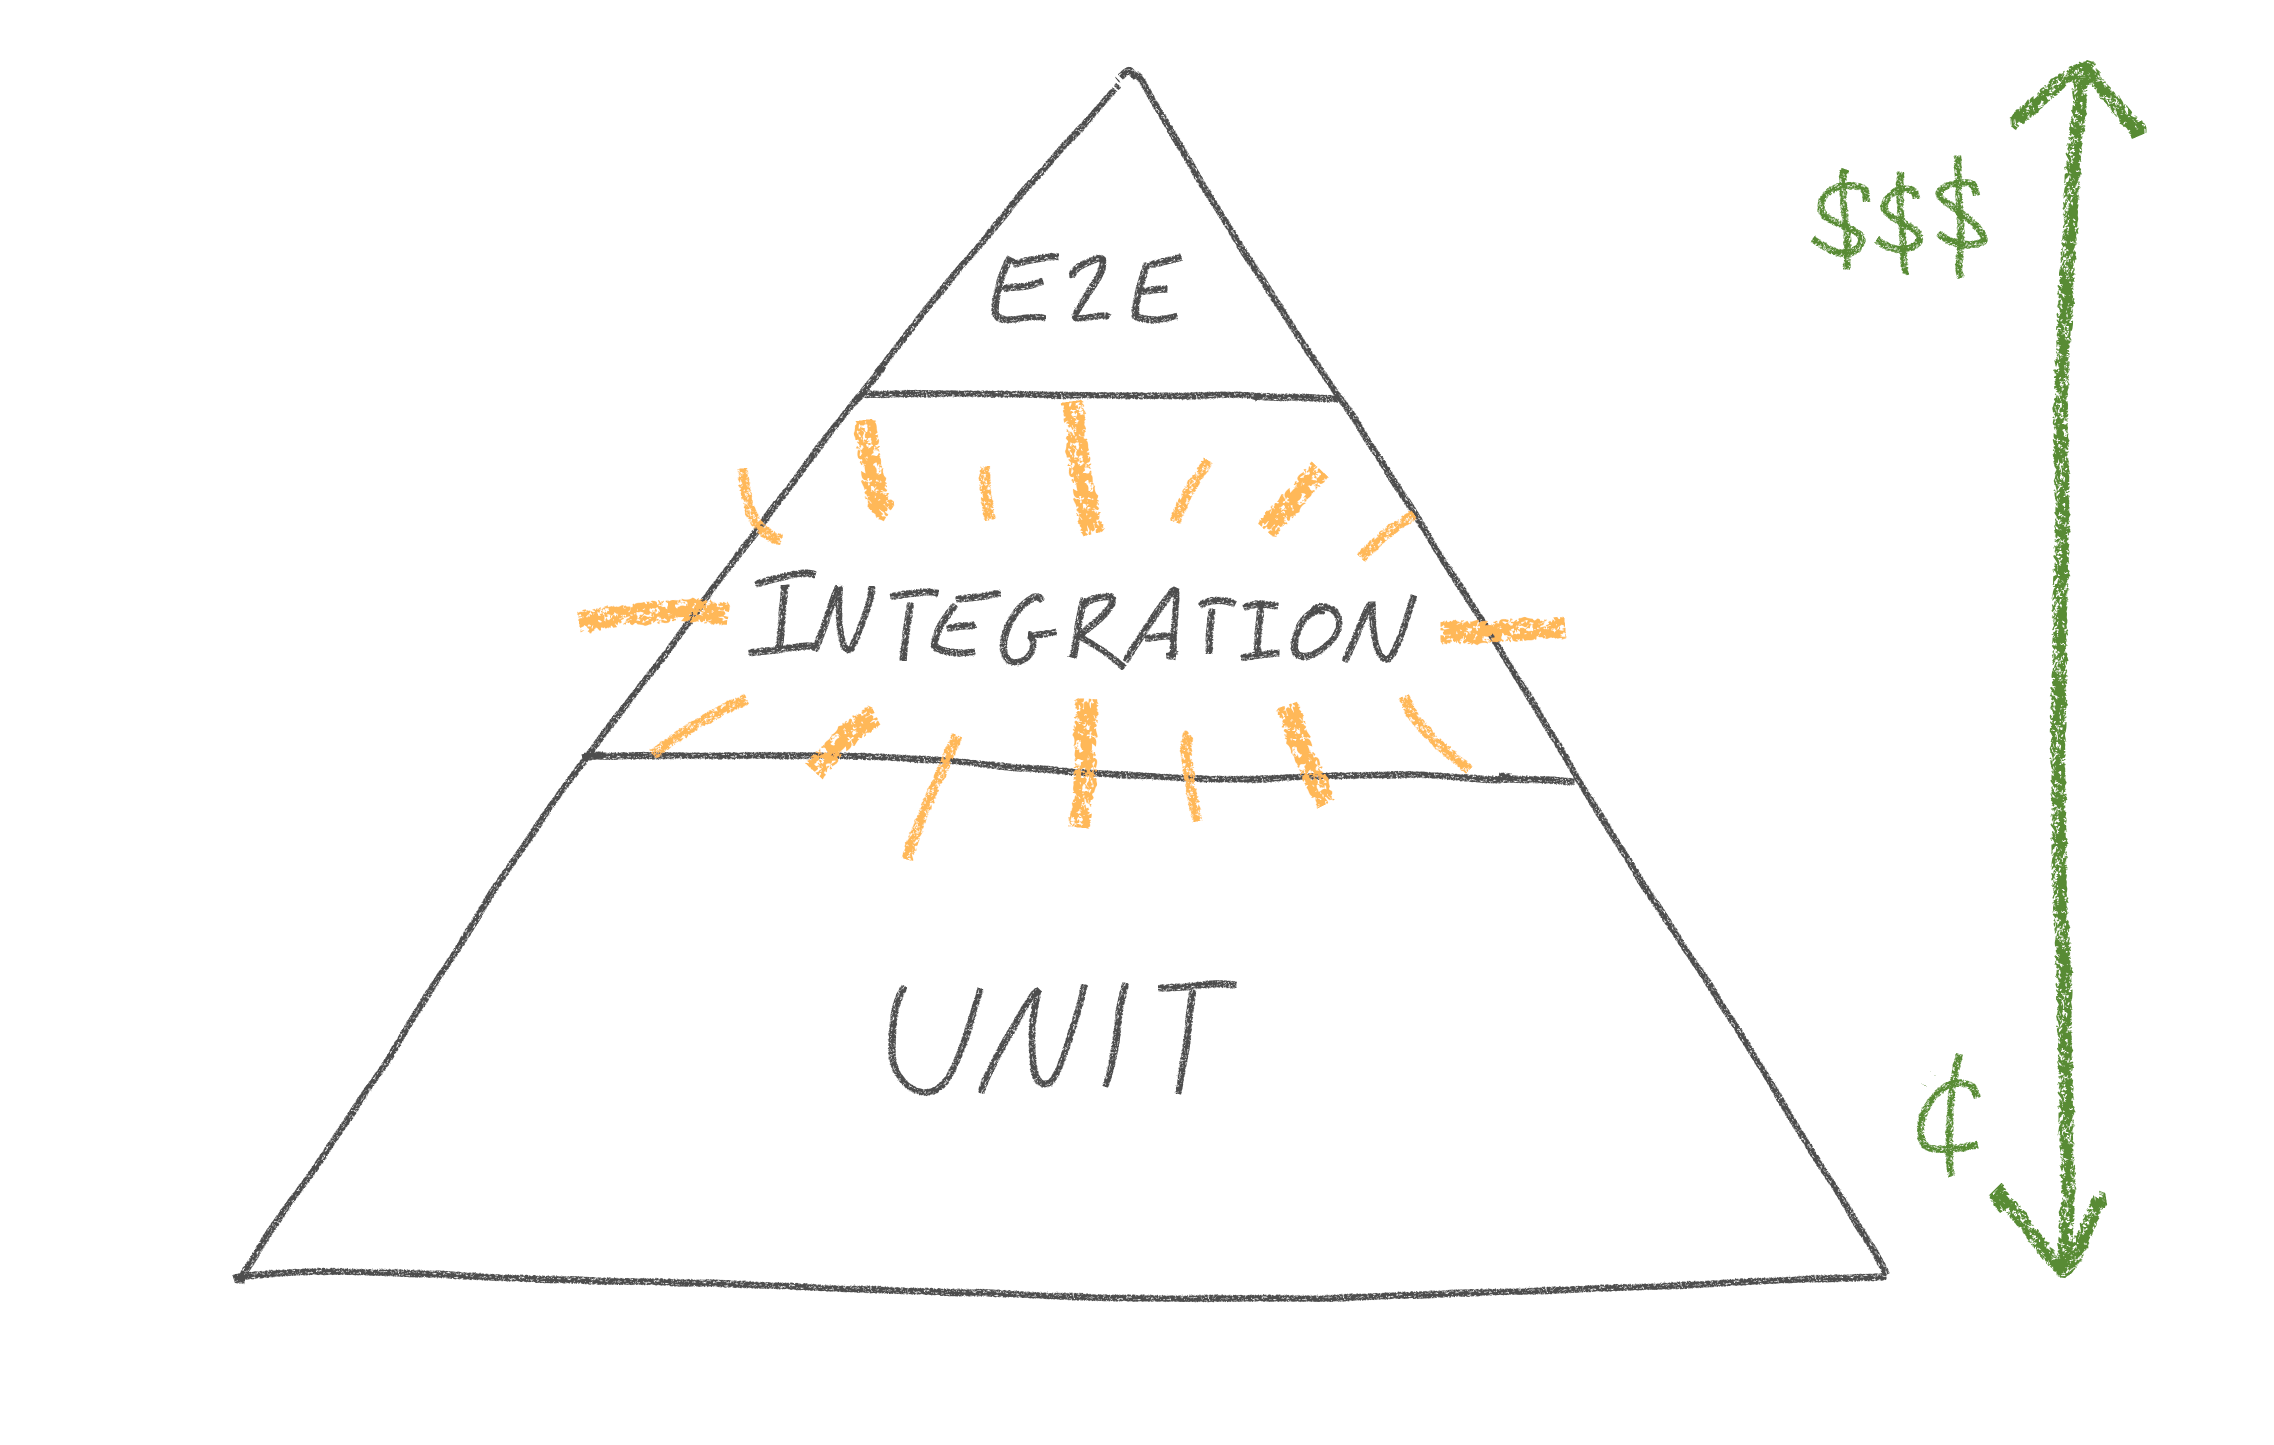 E2E
$$$
INTEGRATION
UNIT
¢